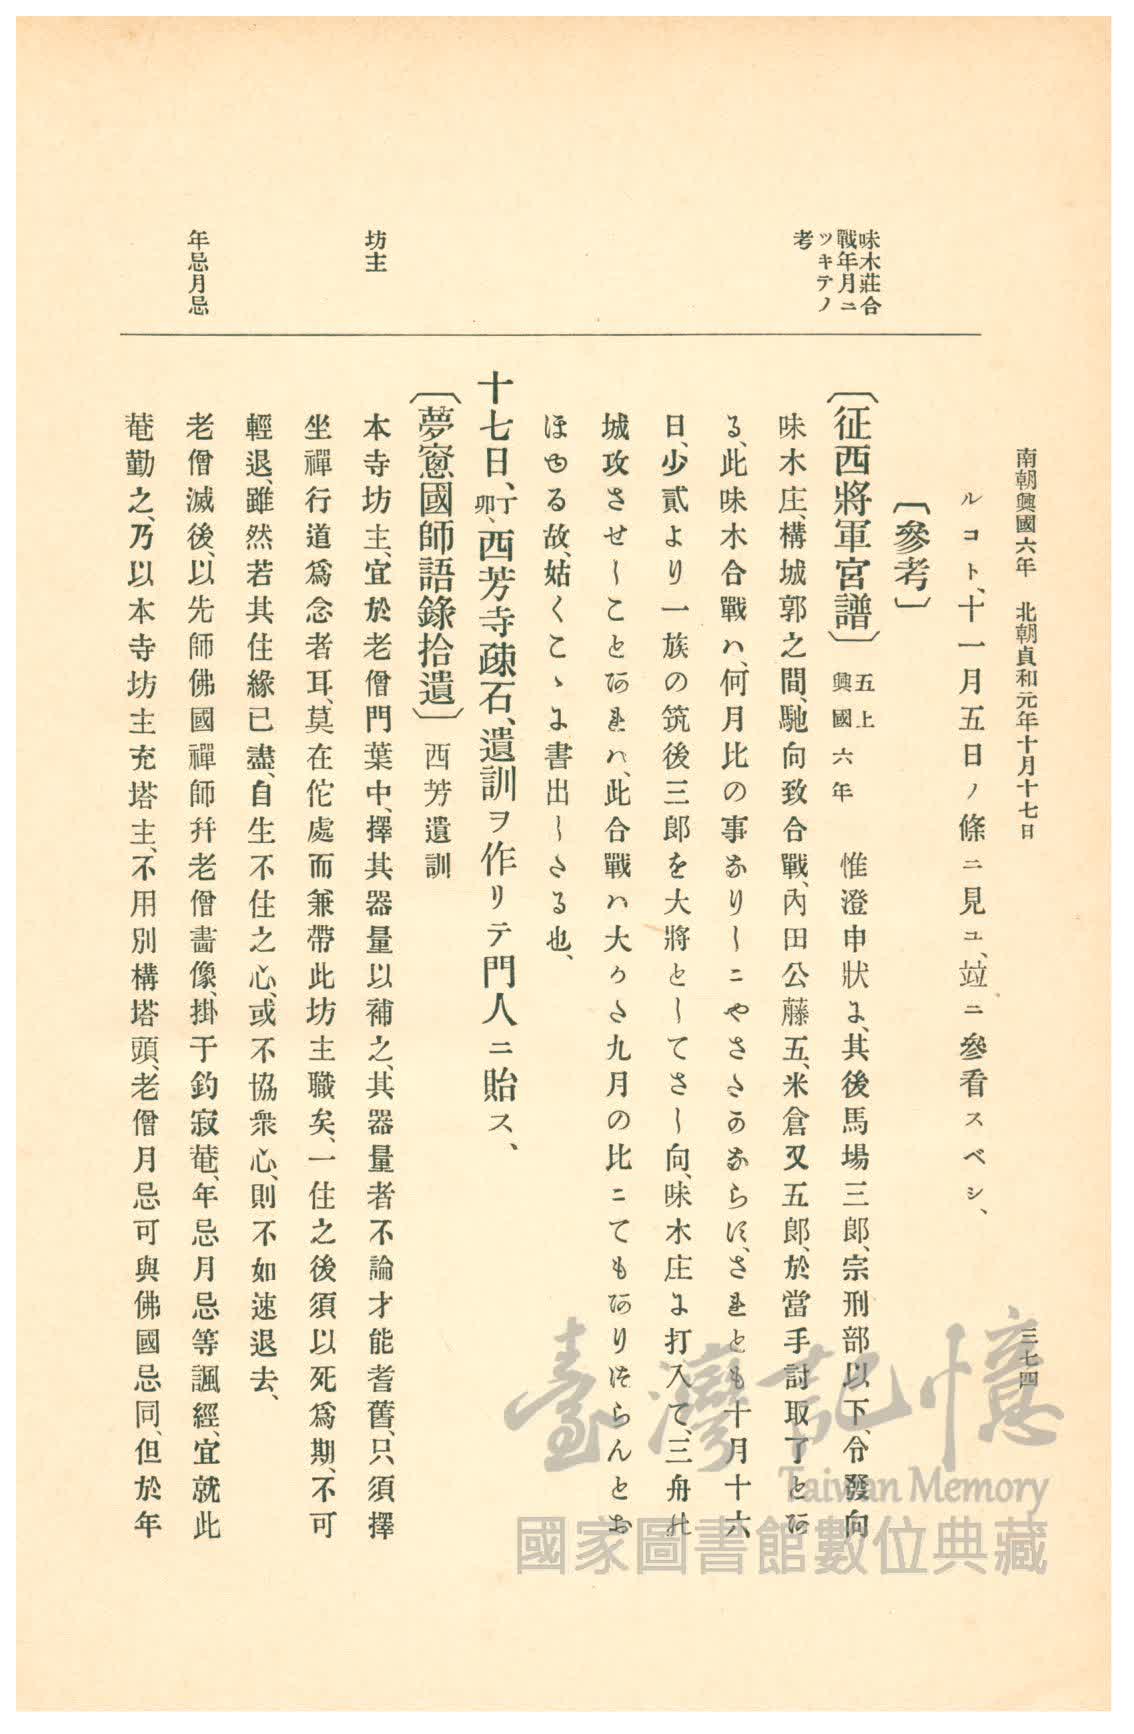 南朝興國六年　北朝貞和元年十月十七日
三七四
ルコト、十一月五日ノ條ニ見ユ、竝ニ參看スベシ、
〔參考〕
味木莊合
戰年月ニ
ツキテノ
考
〔征西將軍宮譜〕五上 興國六年 惟澄申狀に、其後馬場三郎、宗刑部以下、令發向
味木庄、構城郭之間、馳向致合戰、内田公藤五、米倉又五郎、於當手討取了とあ
る、此味木合戰ハ、何月比の事なりしニやさたかならす、されとも十月十六
日、少貳より一族の筑後三郎を大將としてさし向、味木庄に打入て、三舟の
城攻させしことあれハ、此合戰ハ大かた九月の比ニてもありつらんとお
ほゆる故、姑くこゝに書出したる也、
十七日、丁卯、西芳寺疎石、遺訓ヲ作リテ門人ニ貽ス、
〔夢窻國師語錄拾遺〕西芳遺訓
坊主
本寺坊主、宜於老僧門葉中、擇其器量以補之、其器量者不論才能耆舊、只須擇
坐禪行道爲念者耳、莫在佗處而兼帶此坊主職矣、一住之後須以死爲期、不可
輕退、雖然若其住緣已盡、自生不住之心、或不協衆心、則不如速退去、
年忌月忌
老僧滅後、以先師佛國禪師幷老僧畵像、掛于釣寂菴、年忌月忌等諷經、宜就此
菴勤之、乃以本寺坊主充塔主、不用別構塔頭、老僧月忌可與佛國忌同、但於年
臺灣記憶
Taiwan Memory
國家圖書館數位典藏